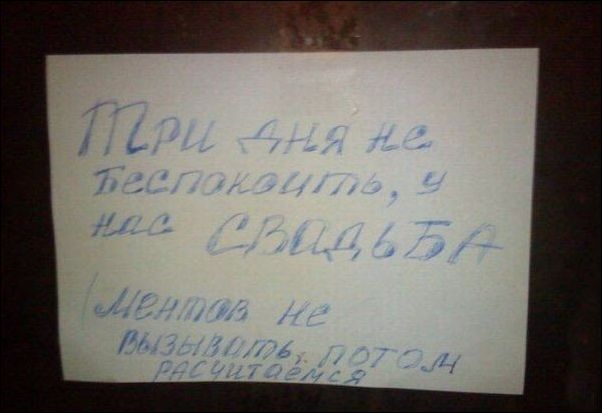 Три дня не
беспокоить, у
нас СВАДЬБА
(Ментов не
вызывать, потом
расчитаемся